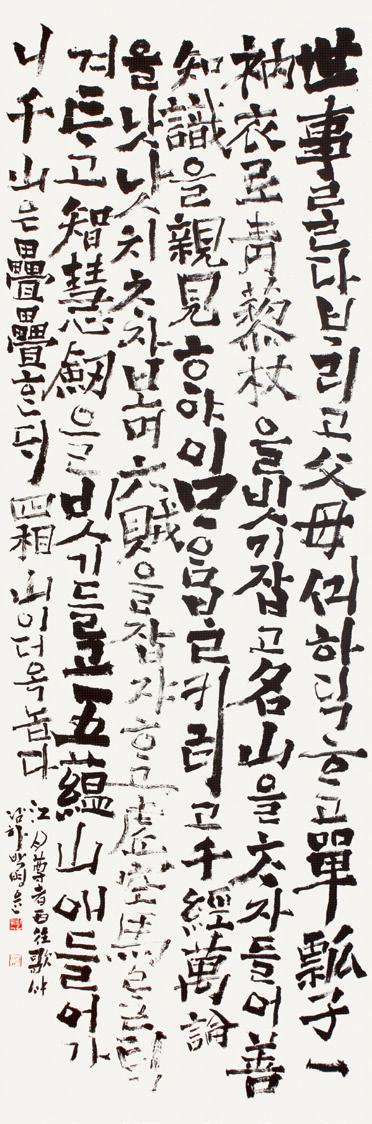 世事를 다 ᄇᆞ리고 父母ᄭᅴ 하딕ᄒᆞ고 單瓢子一
衲衣로 靑藜杖을 빗기 잡고 名山을 ᄎᆞ자 들어 善
知識을 親見ᄒᆞ야 이 ᄆᆞᄋᆞᆷ ᄇᆞᆯ키려고 千經萬論
을 낫낫치 ᄎᆞ자보며 六賊을 잡자ᄒᆞ고 虛空馬ᄅᆞᆯ
겨트고 智慧劒을 빗기 들고 五蘊山애 들어가
니 千山은 疊疊ᄒᆞᆫᄃᆡ 四相山이 더욱 놉다
江月尊者西往歌